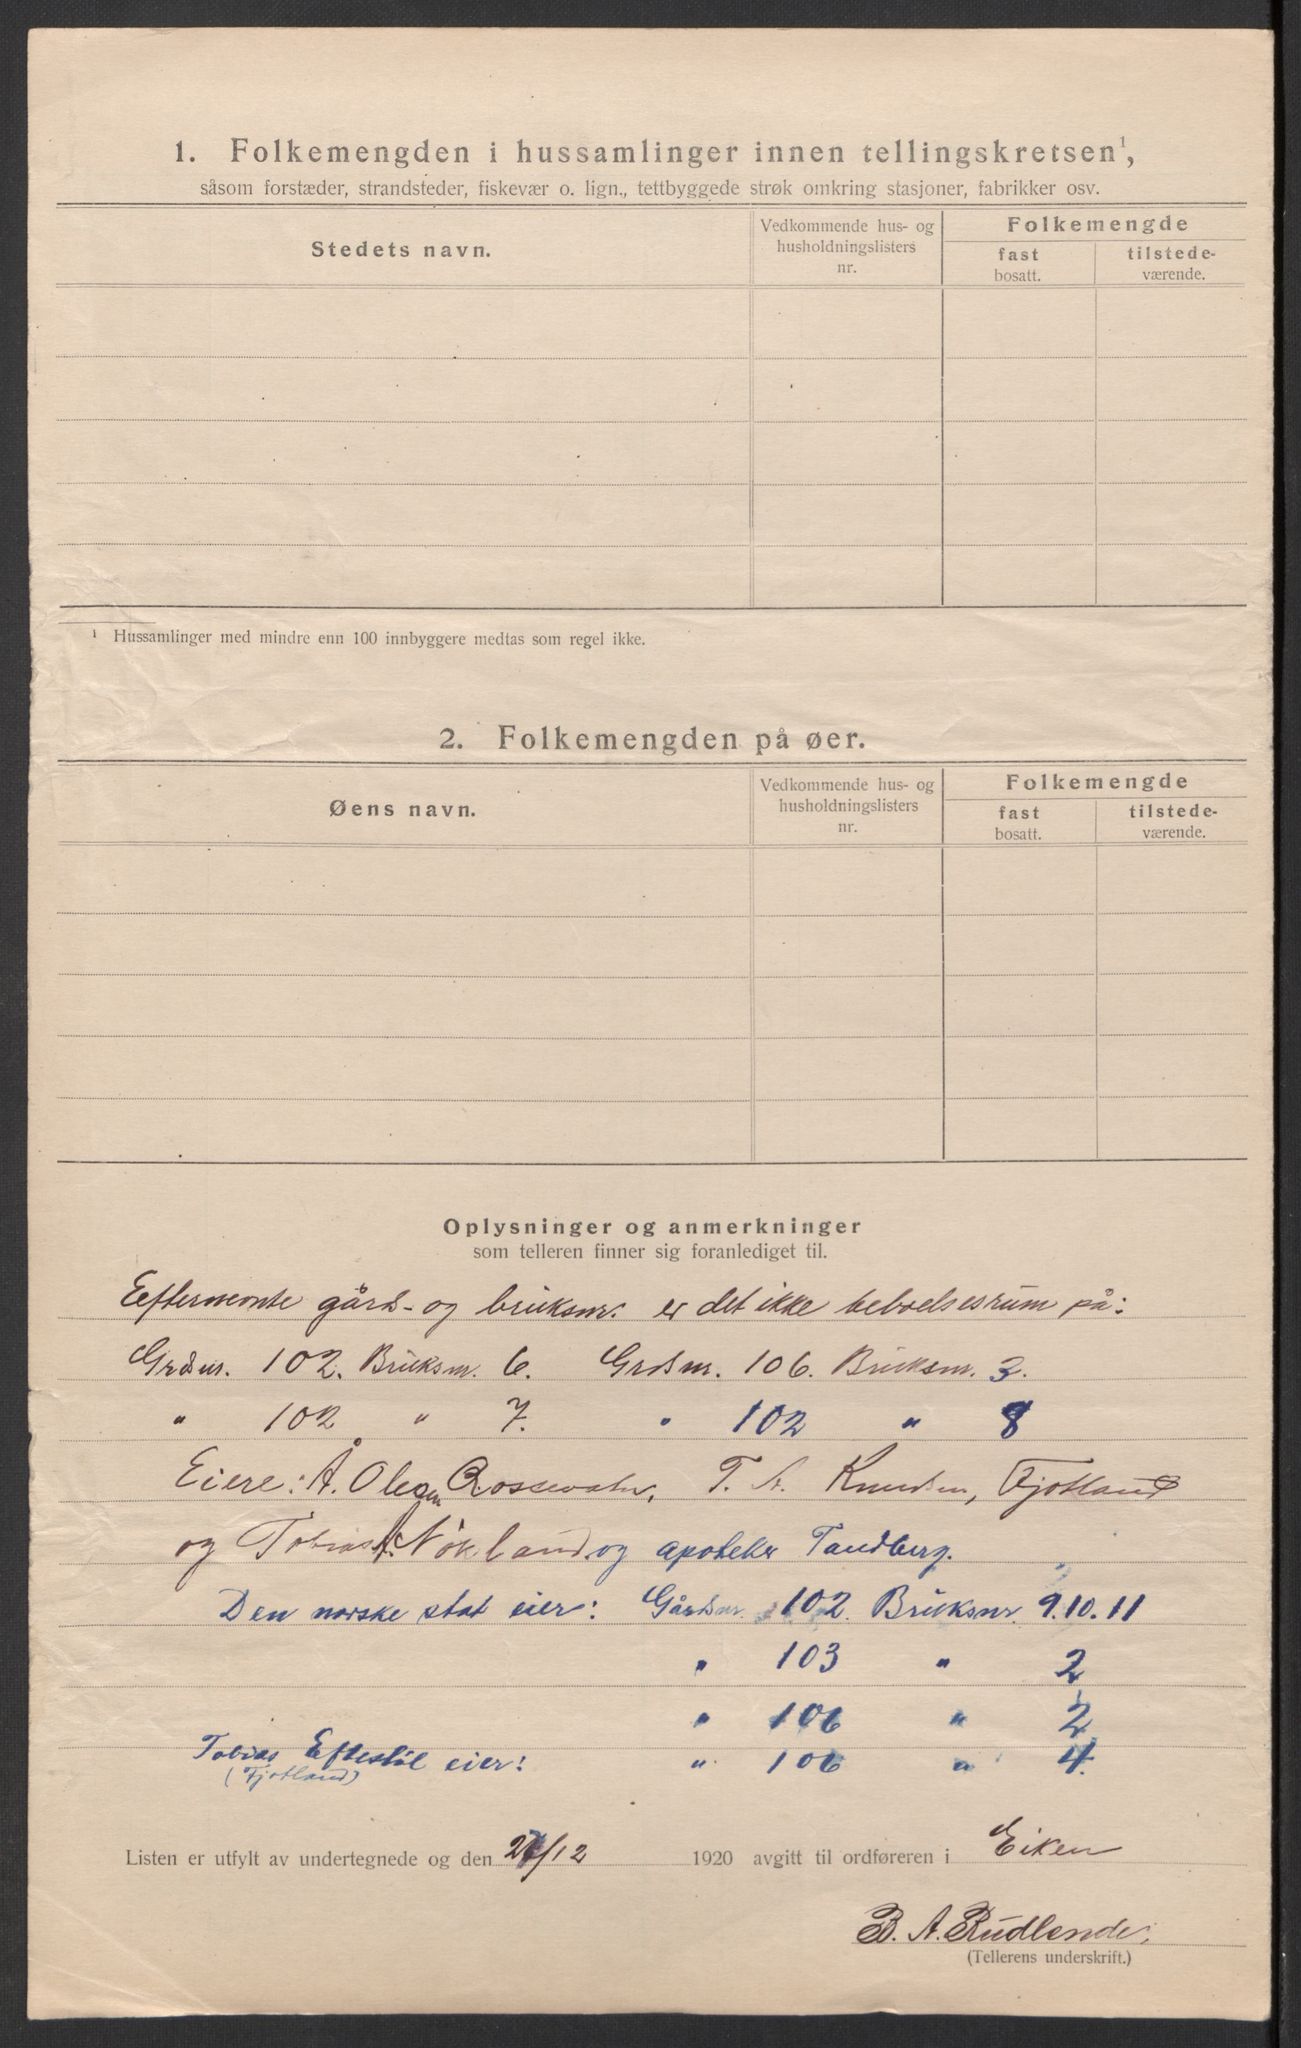 1. Folkemengden i hussamlinger innen tellingskretsen¹,
såsom forstæder, strandsteder, fiskevær o. lign., tettbyggede strøk omkring stasjoner, fabrikker osv.
Stedets navn.
Vedkommende hus- og
husholdningslisters
nr.
Folkemengde
fast
bosatt.
tilstede-
værende.
¹ Hussamlinger med mindre enn 100 innbyggere medtas som regel ikke.
2. Folkemengden på øer.
Øens navn.
Vedkommende hus- og
husholdningslisters
nr.
Folkemengde
fast
bosatt.
tilstede-
værende.
Oplysninger og anmerkninger
som telleren finner sig foranlediget til.
gårds- og bruksnr. er det ikke beboelsesrum på:
Grdsnr. 102. Bruksnr. 6. Grdsnr. 106. Bruksnr. 3.
" 102 " 7. " 102 " 8
Eiere: Å. Olsen T. A. Knudsen, Fjotland
og Tobias Nökland og apoteker Tandberg.
Den norske stat eier: Gårdsnr. 102. Bruksnr. 9.10.11
" 103 " 2
" 106 " 2
Tobias Eftestöl eier: " 106 " 4.
(Fjotland)
Listen er utfylt av undertegnede og den /12 1920 avgitt til ordføreren i Eiken
B. A. Rudlende.
(Tellerens underskrift.)